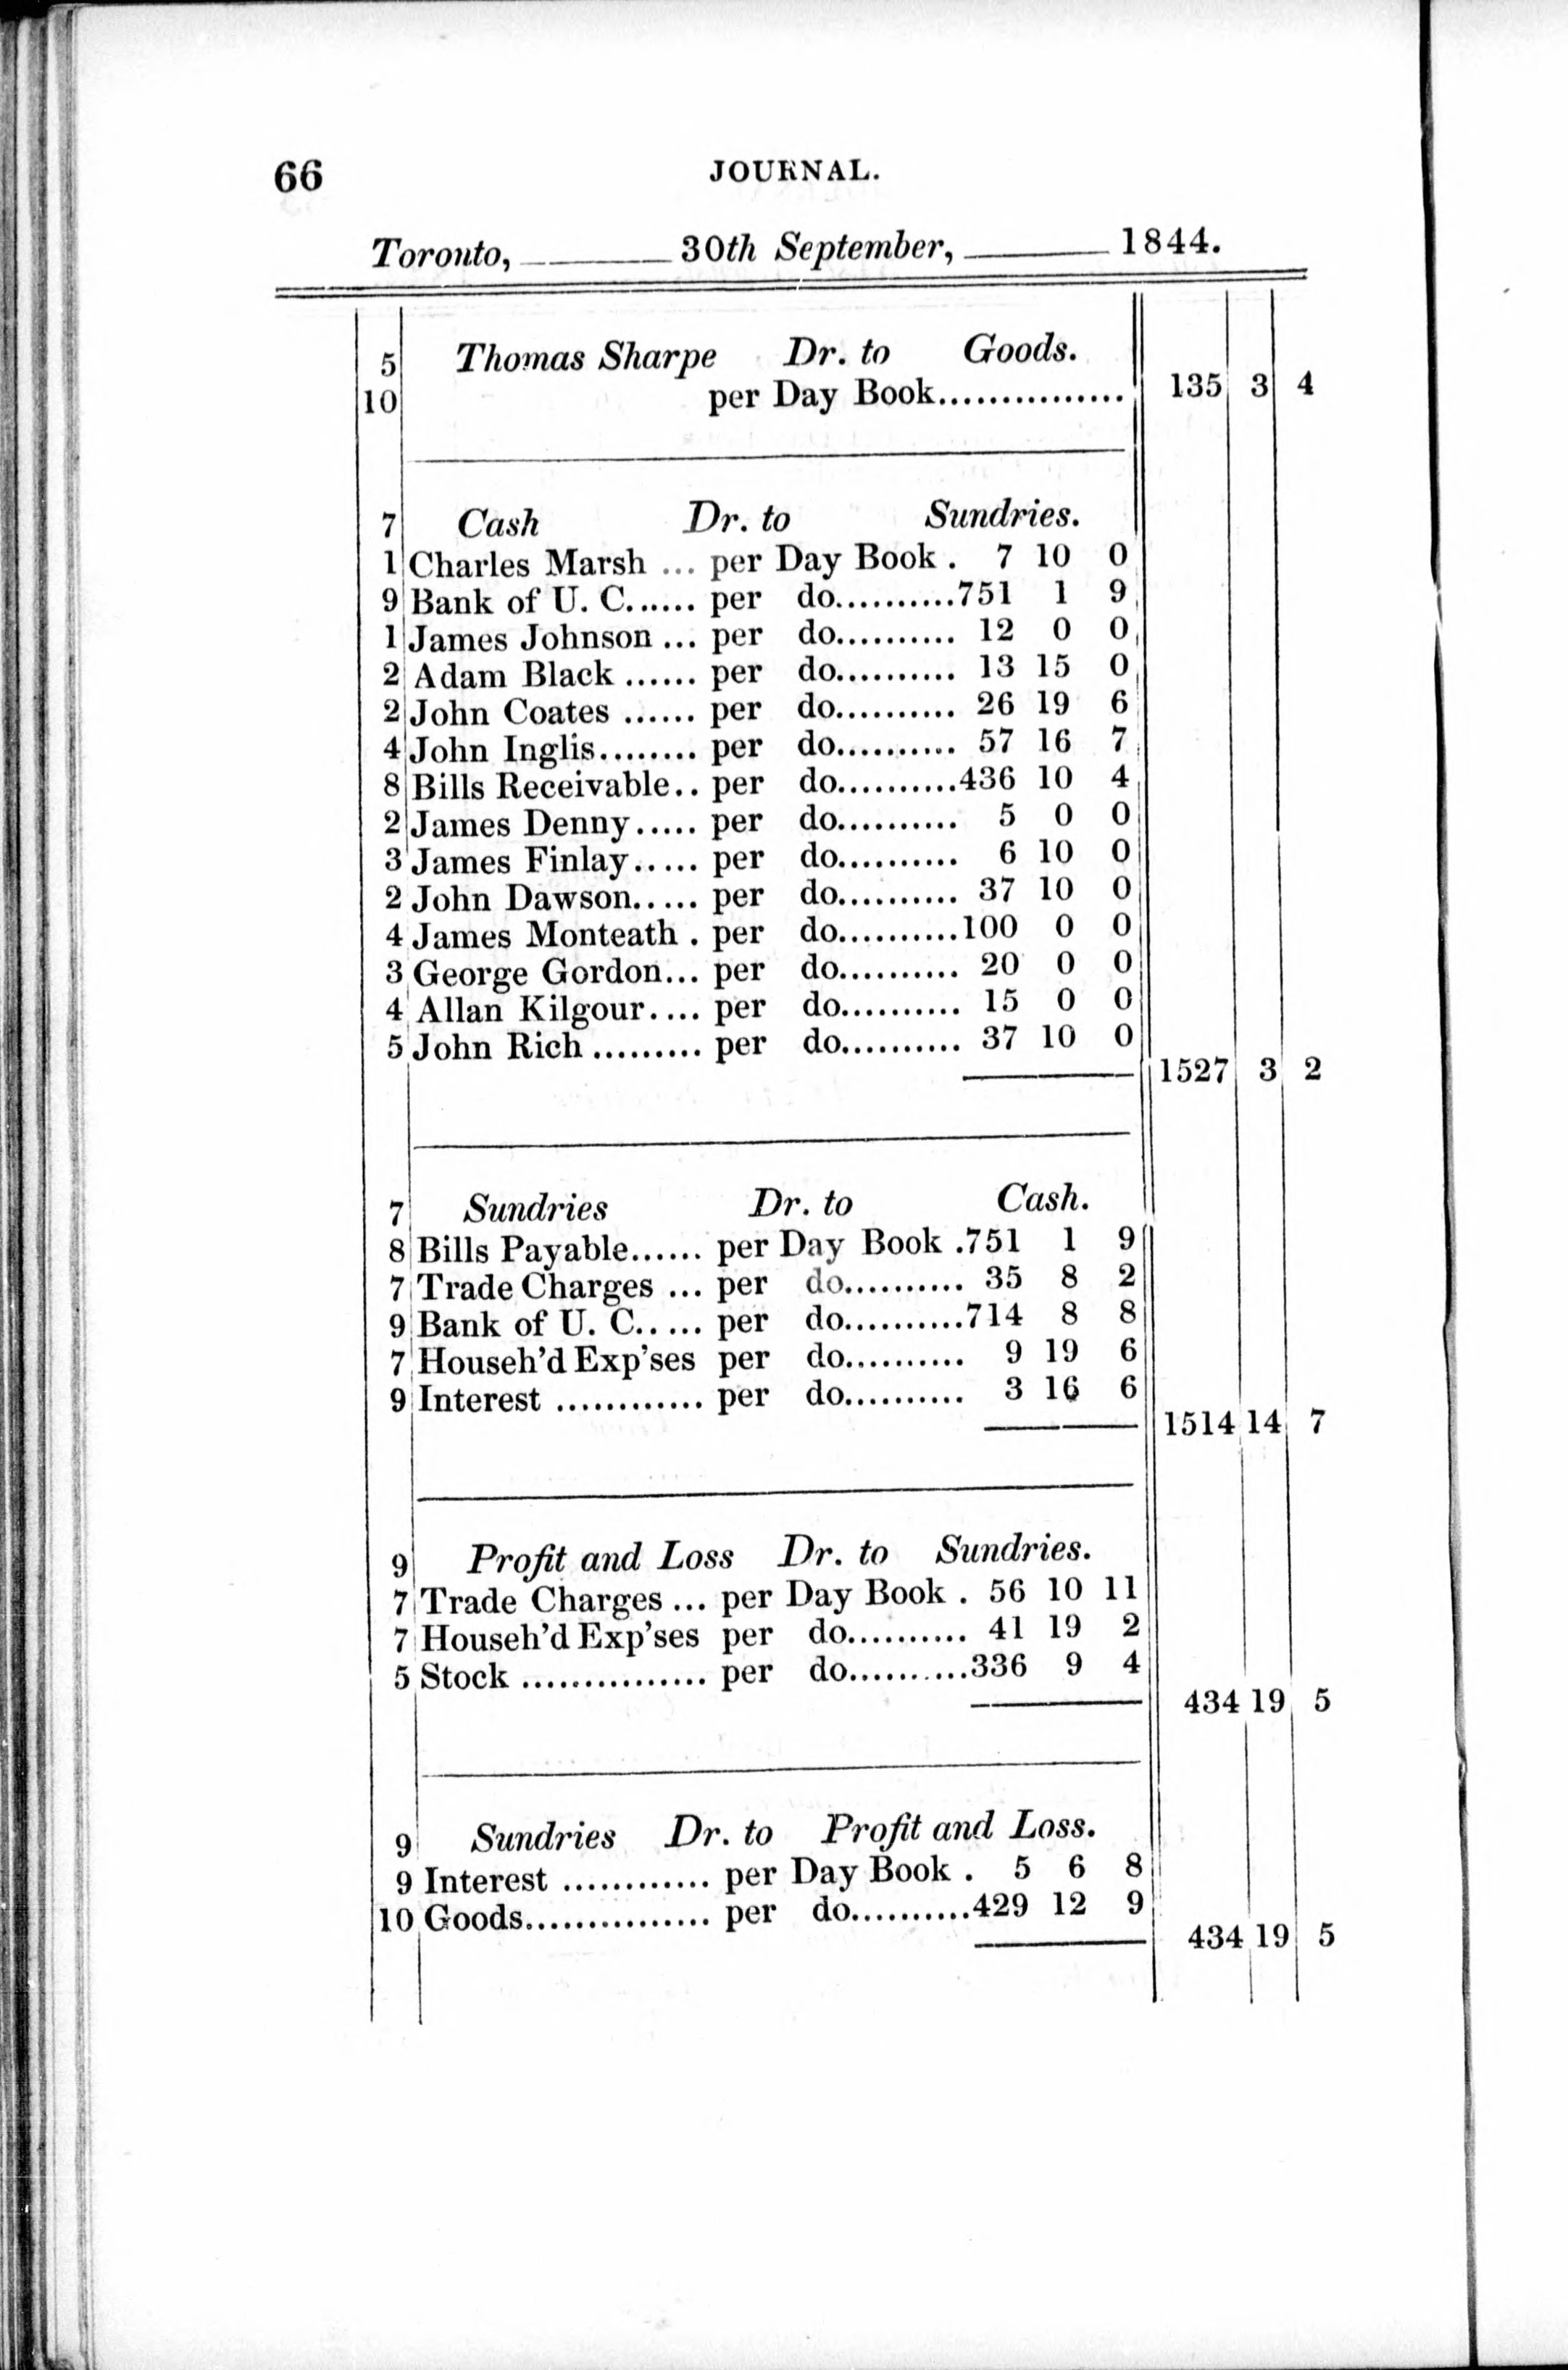 66 JOURNAL.
Toronto, 30th September, 1844.
5 Thomas Sharpe Dr. to Goods.
10 per Day Book............... 135 3 4
7 Cash Dr. to Sundries.
1 Charles Marsh ... per Day Book . 7 10 0
9 Bank of U. C...... per do..........751 1 9
1 James Johnson ... per do.......... 12 0 0
2 Adam Black ...... per do.......... 13 15 0
2 John Coates ...... per do.......... 26 19 6
4 John Inglis........ per do.......... 57 16 7
8 Bills Receivable.. per do..........436 10 4
2 James Denny..... per do.......... 5 0 0
3 James Finlay..... per do.......... 6 10 0
2 John Dawson..... per do.......... 37 10 0
4 James Monteath . per do..........100 0 0
3 George Gordon... per do.......... 20 0 0
4 Allan Kilgour.... per do.......... 15 0 0
5 John Rich ......... per do.......... 37 10 0
1527 3 2
7 Sundries Dr. to Cash.
8 Bills Payable...... per Day Book .751 1 9
7 Trade Charges ... per do.......... 35 8 2
9 Bank of U. C..... per do..........714 8 8
7 Househ'd Exp'ses per do.......... 9 19 6
9 Interest ............ per do.......... 3 16 6
1514 14 7
9 Profit and Loss Dr. to Sundries.
7 Trade Charges ... per Day Book . 56 10 11
7 Househ'd Exp'ses per do.......... 41 19 2
5 Stock ............... per do..........336 9 4
434 19 5
9 Sundries Dr. to Profit and Loss.
9 Interest ............ per Day Book . 5 6 8
10 Goods............... per do..........429 12 9
434 19 5